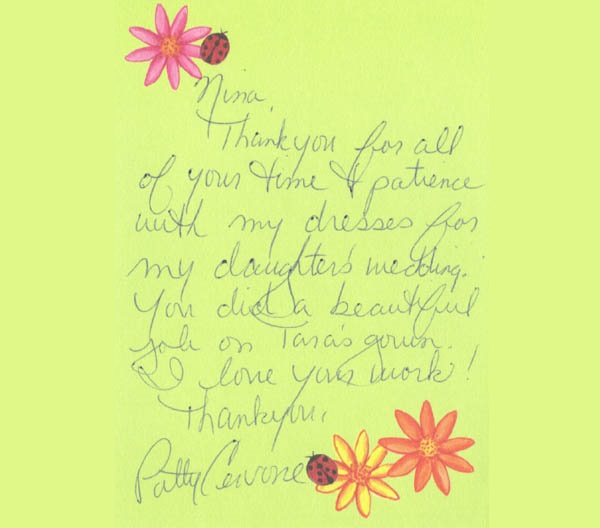 Nina,
Thankyou for all
of your time & patience
with my dresses for
my daughter's wedding.
You did a beautiful
job on Tara's gown.
I love your work!
Thankyou,
Patty Cervone